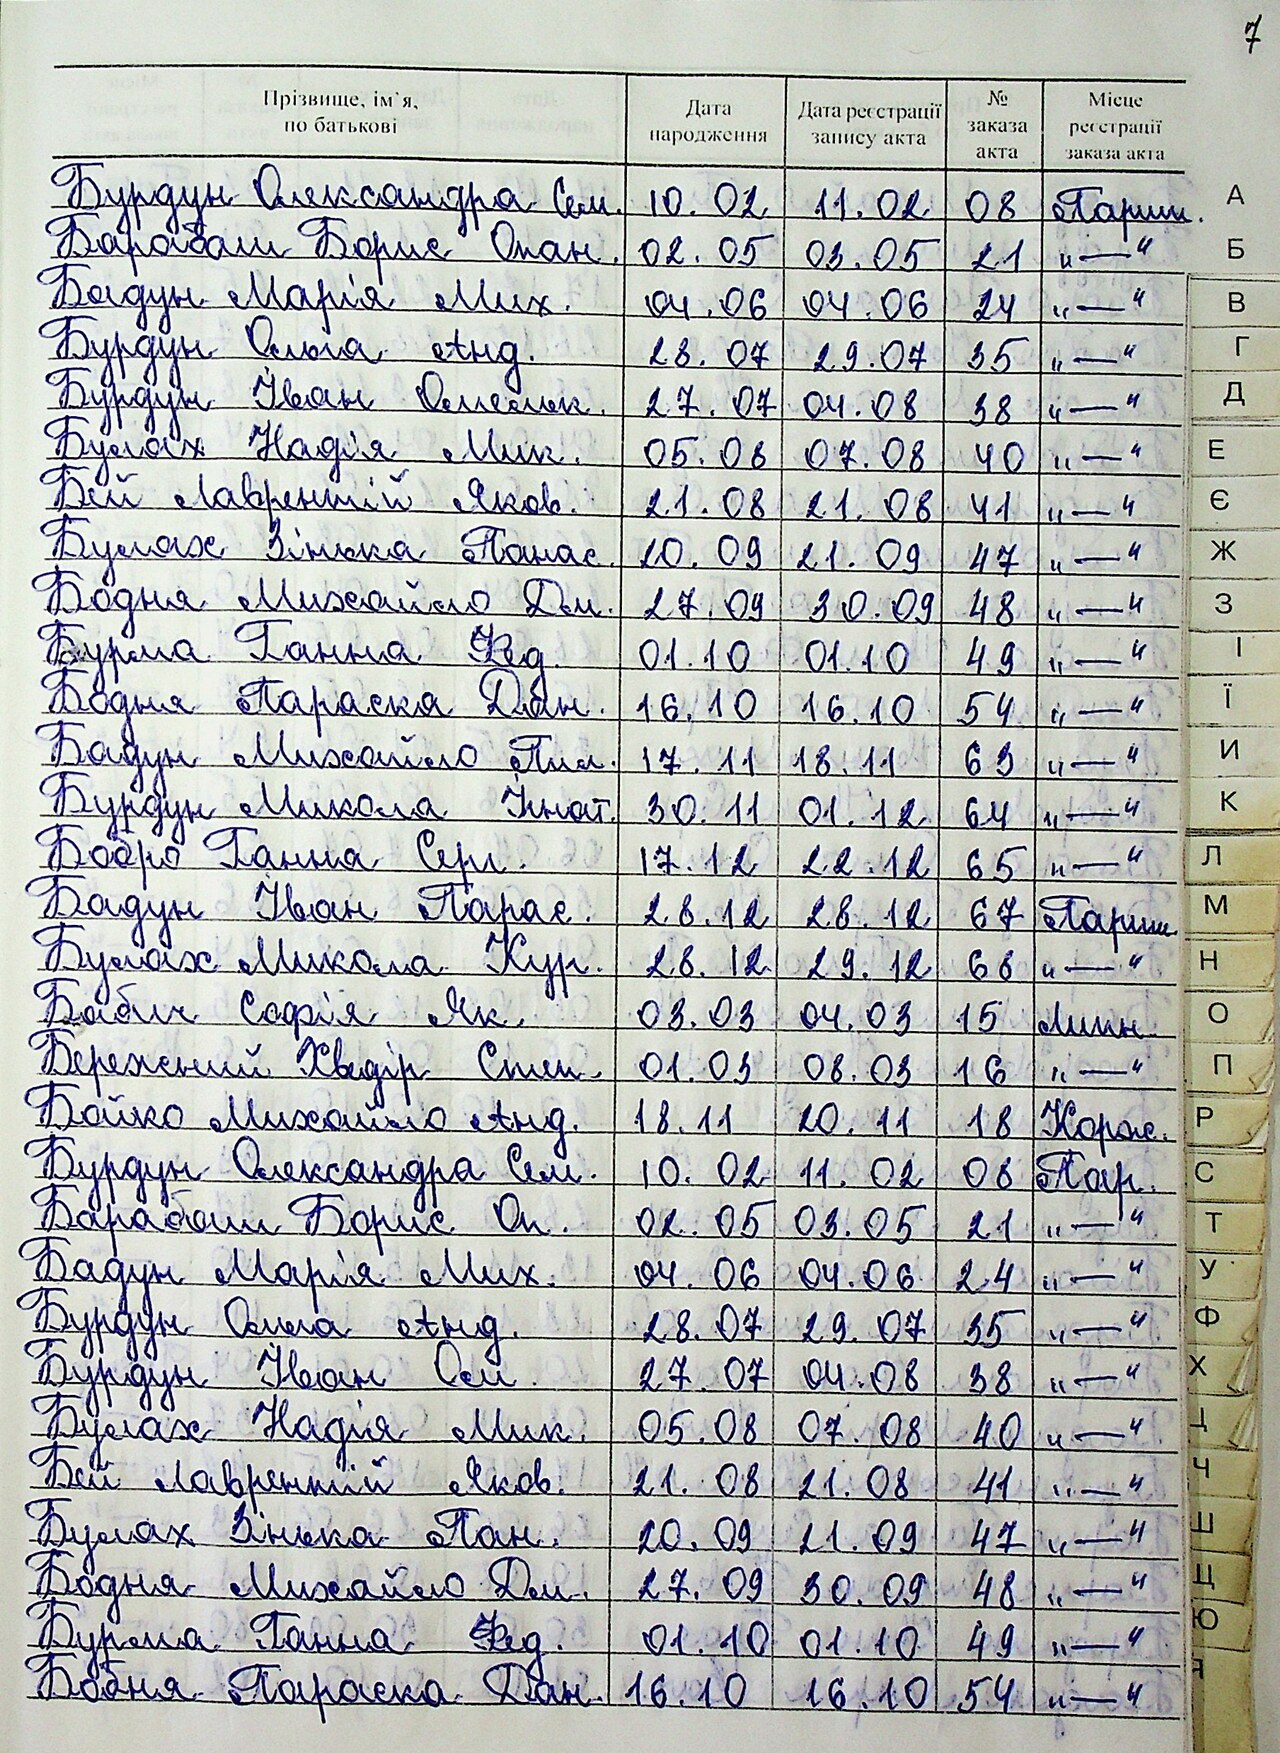 7
Прізвище, ім`я, по батькові Дата народження Дата реєстрації запису акта № заказа акта Місце реєстрації заказа акта
Бурдун Олександра Сем. 10.02 11.02 08 Париш.
Барабаш Борис Опан. 02.05 03.05 21 „—“
Бадун Марія Мих. 04.06 04.06 24 „—“
Бурдун Ольга Анд. 28.07 29.07 35 „—“
Бурдун Іван Омельк. 27.07 04.08 38 „—“
Булах Надія Мик. 05.08 07.08 40 „—“
Бей Лаврентій Яков. 21.08 21.08 41 „—“
Булах Зінька Панас. 20.09 21.09 47 „—“
Бодня Михайло Дм. 27.09 30.09 48 „—“
Бурма Ганна Фед. 01.10 01.10 49 „—“
Бодня Параска Дан. 16.10 16.10 54 „—“
Бадун Михайло Пил. 17.11 18.11 63 „—“
Бурдун Микола Ігнат. 30.11 01.12 64 „—“
Бобро Ганна Серг. 17.12 22.12 65 „—“
Бадун Іван Парас. 28.12 28.12 67 Париш.
Булах Микола Кур. 28.12 29.12 68 „—“
Бабич Софія Як. 03.03 04.03 15 Линн.
Бережний Хведір Степ. 01.03 08.03 16 „—“
Бойко Михайло Анд. 18.11 20.11 18
Бурдун Олександра Сем. 10.02 11.02 08 Пар.
Барабаш Борис Оп. 02.05 03.05 21 „—“
Бадун Марія Мих. 04.06 04.06 24 „—“
Бурдун Ольга Анд. 28.07 29.07 35 „—“
Бурдун Іван Ом. 27.07 04.08 38 „—“
Булах Надія Мик. 05.08 07.08 40 „—“
Бей Лаврентій Яков. 21.08 21.08 41 „—“
Булах Зінька Пан. 20.09 21.09 47 „—“
Бодня Михайло Дм. 27.09 30.09 48 „—“
Бурма Ганна Фед. 01.10 01.10 49 „—“
Бобня Параска Дан. 16.10 16.10 54 „—“
А
Б
В
Г
Д
Е
Є
Ж
З
І
Ї
И
К
Л
М
Н
О
П
Р
С
Т
У
Ф
Х
Ц
Ч
Ш
Щ
Ю
Я